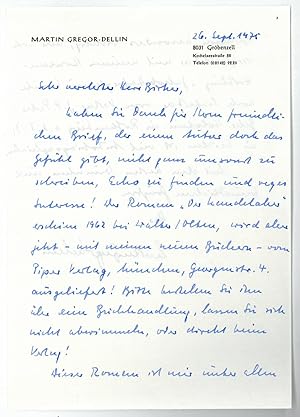 MARTIN GREGOR-DELLIN
26. Sept. 1975
8031 Gröbenzell
Telefon
Sehr verehrter Herr
haben Sie Dank für Ihren freundli-
chen Brief, der einem Autor doch das
Gefühl gibt, nicht ganz umsonst zu
schreiben, Echo zu finden und reges
Interesse! Der Roman „Der Kandelaber"
erschien 1962 bei Walter/Olten, wird aber
jetzt - mit meinen neuen Büchern - vom
Piper Verlag, München, Georgenstr. 4.
ausgeliefert! Bitte bestellen Sie ihn
über eine Buchhandlung, lassen Sie sich
nicht abwimmeln, oder direkt beim
Verlag!
Dieser Roman ist mir unter allen